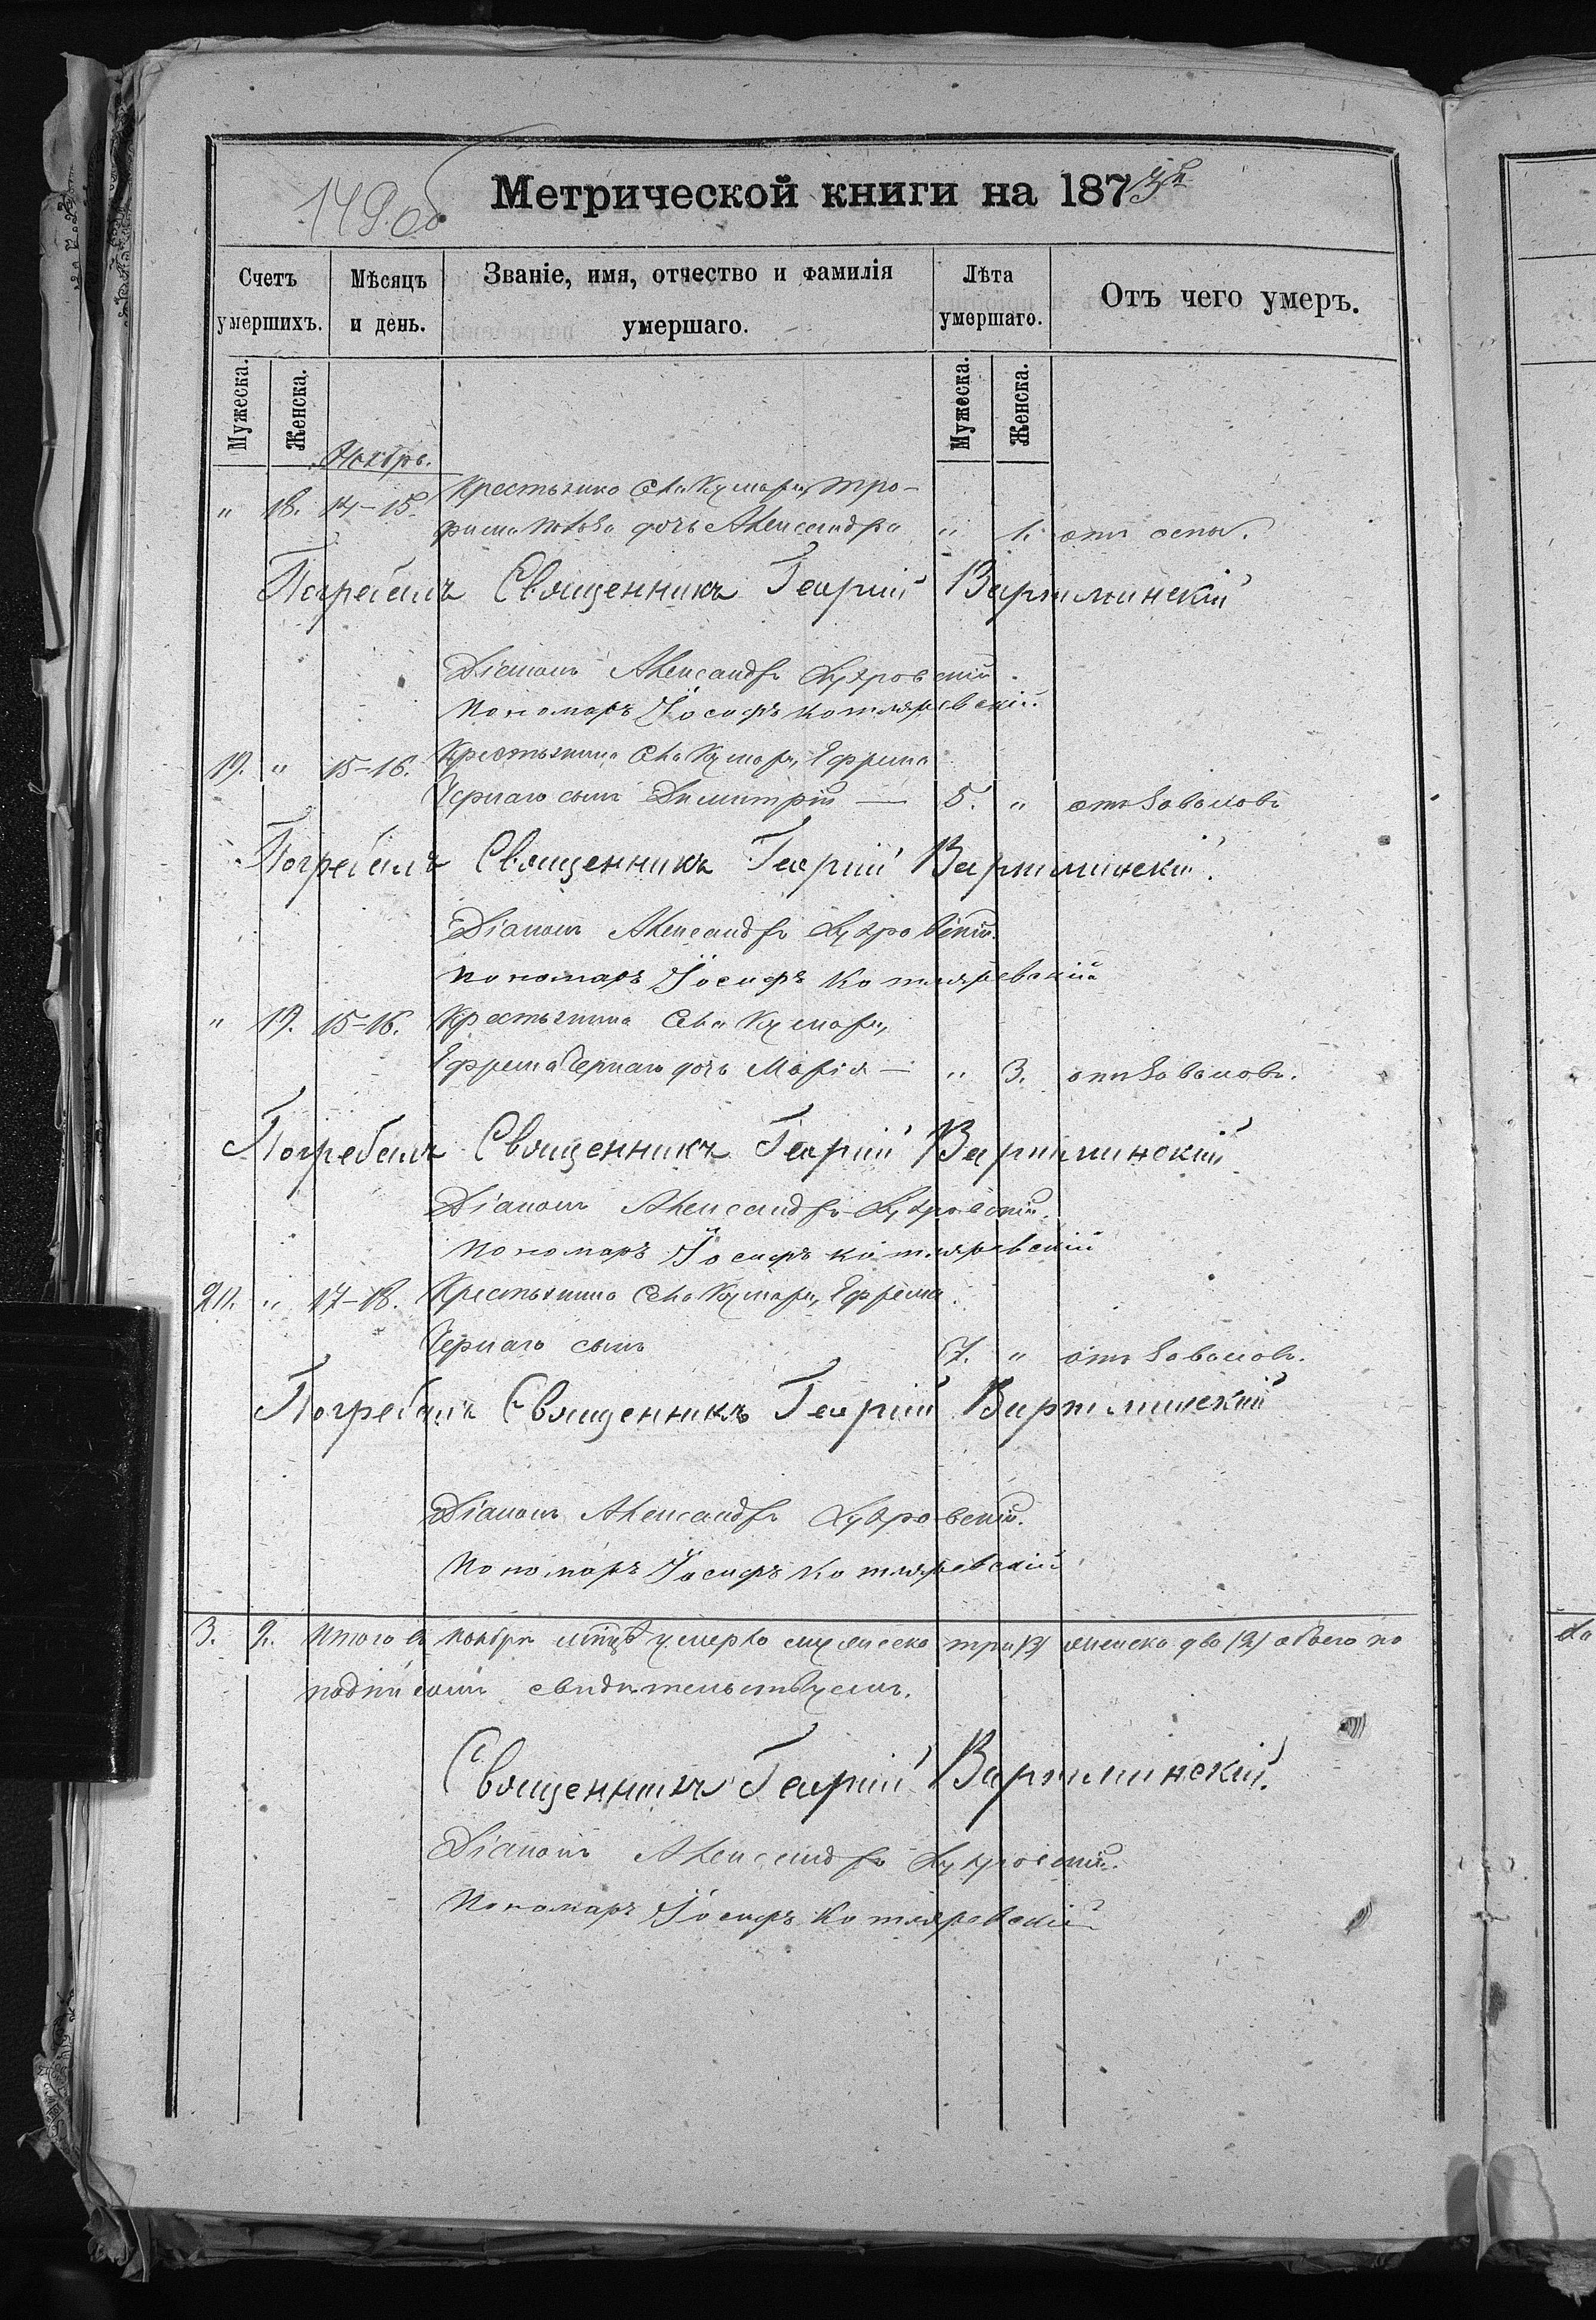 149 об
Метрической книги на 187
Счетъ умершихъ.
Мѣсяцъ и день.
Званіе, имя, отчество и фамилія умершаго.
Лѣта умершаго.
Отъ чего умеръ.
Мужеска.
Женска.
Мужеска.
Женска.
Ноябрь.
" 18. 14-15. Крестьянина Села Кумары Тро-
фима дочь Александра " 1. отъ оспы.
Погребалъ Священникъ Георгій Вартминскій
Діаконъ Александръ
Пономарь Іосифъ Котляревскій
19. " 15-16. Крестьянина Села Кумары, Ефрема
Чернаго сынъ Димитрій — 5. " отъ
Погребалъ Священникъ Георгій Вартминскій.
Діаконъ Александръ
Пономарь Іосифъ Котляревскій
" 19. 15-16. Крестьянина Села Кумары,
Ефрема Чернаго дочь Марія — " 3. отъ
Погребалъ Священникъ Георгій Вартминскій
Діаконъ Александръ
Пономарь Іосифъ Котляревскій
20. " 17-18. Крестьянина Села Кумары, Ефрема
Чернаго сынъ 7. " отъ
Погребалъ Священникъ Георгій Вартминскій
Діаконъ Александръ
Пономарь Іосифъ Котляревскій
3. 2. Итого въ Ноябрѣ умерло мужеска три /3/ женска два /2/ обоего по
свидѣтельствуемъ.
Священникъ Георгій Вартминскій.
Діаконъ Александръ
Пономарь Іосифъ Котляревскій